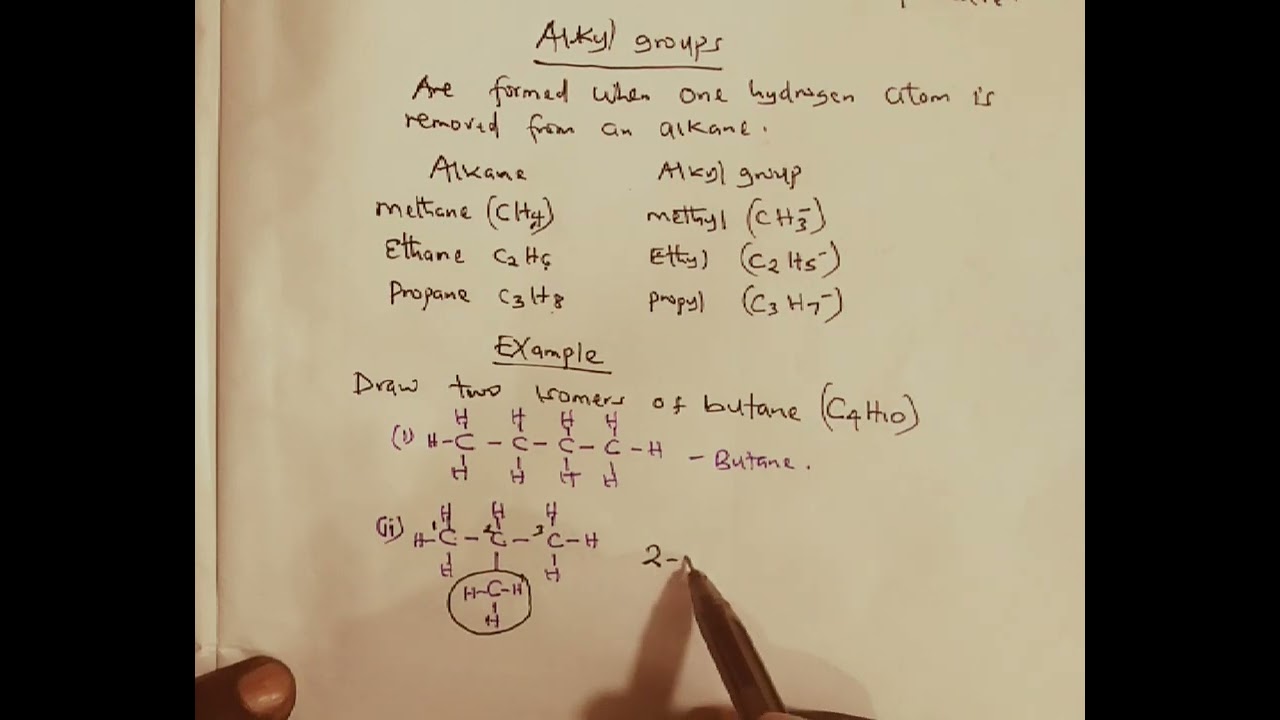 Alkyl groups
Are formed when one hydrogen atom is
removed from an alkane.
Alkane Alkyl group
methane (CH4) methyl (CH3-)
Ethane C2H6 Ethyl (C2H5-)
Propane C3H8 propyl (C3H7-)
Example
Draw two isomers of butane (C4H10)
H H H H
(i) H-C-C-C-C-H - Butane.
H H H H
H H H
(ii) H-1C-2C-3C-H 2-
H H
H-C-H
H